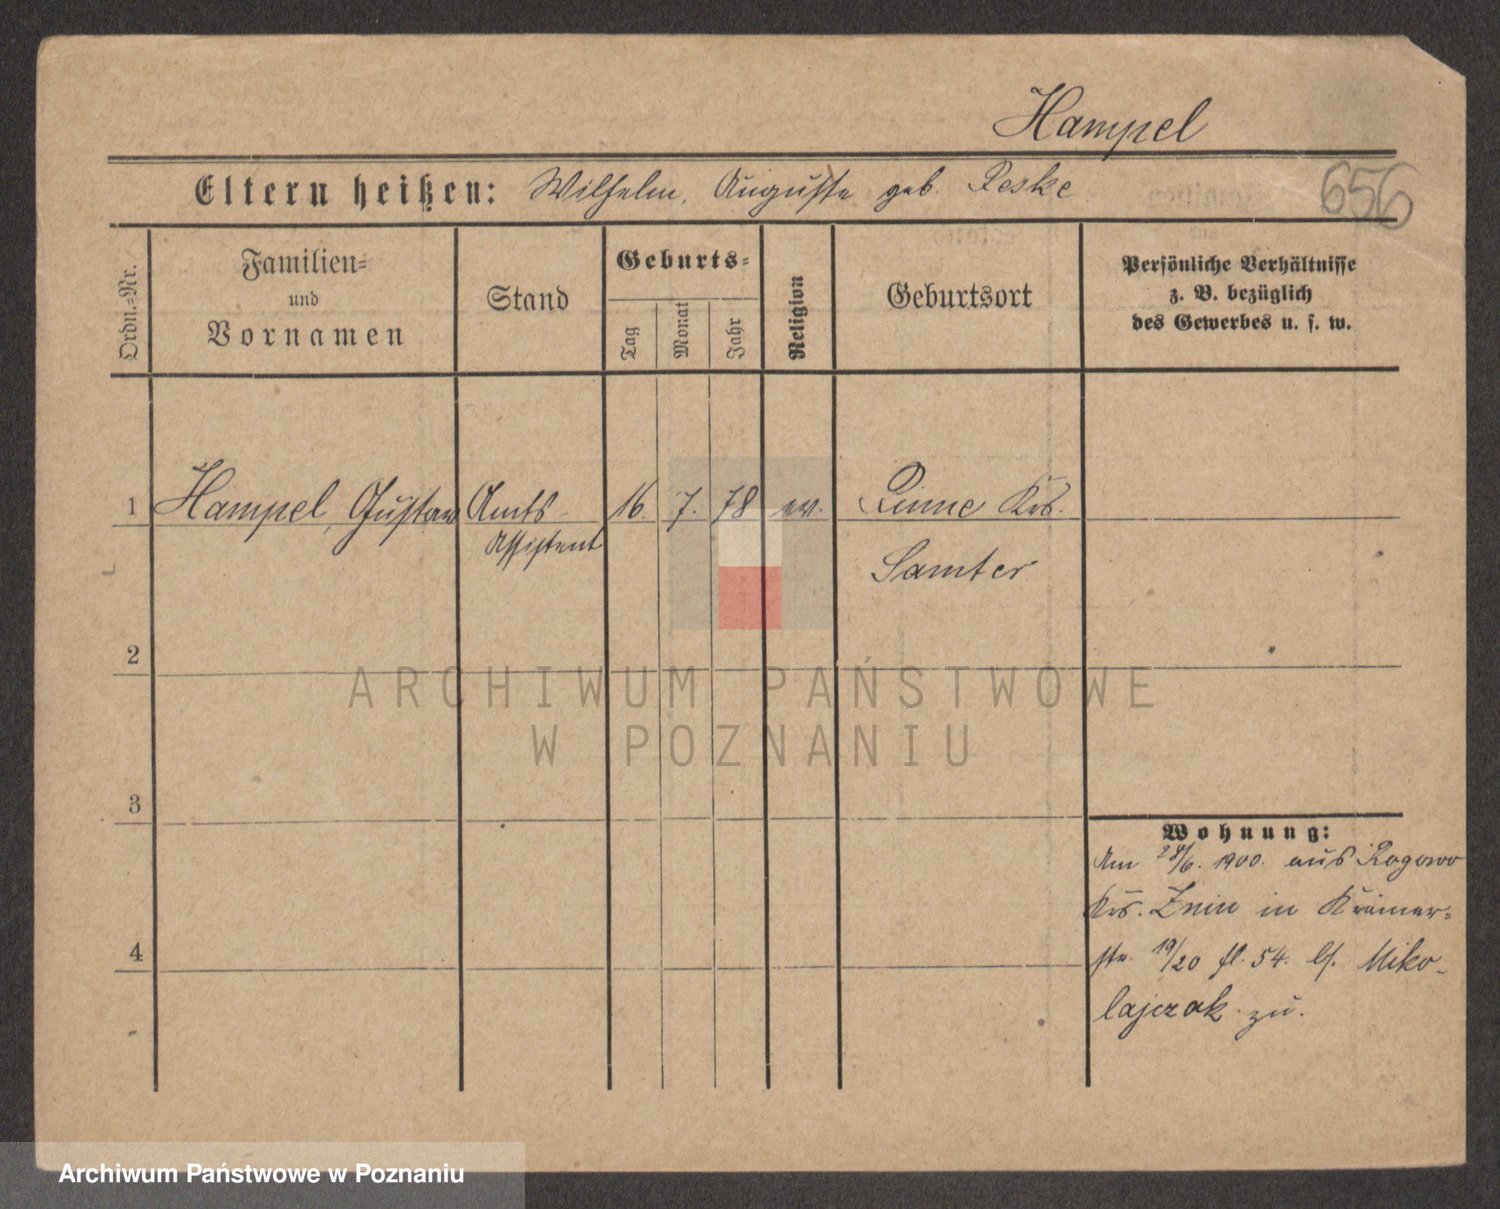 Hampel
Eltern heißen: Wilhelm, Auguste geb. Peske
656
Ordn.=Nr.
Familien=
und
Vornamen
Stand
Geburts=
Tag
Monat
Jahr
Religion
Geburtsort
Persönliche Verhältnisse
z. B. bezüglich
des Gewerbes u. s. w.
1 Hampel, Gustav Amts- 16. 7. 78 ev. Pinne Krs.
Assistent Samter
2
3
4
Wohnung:
Am 28/6. 1900. aus Rogowo
Krs. Znin in Krämer=
str. 19/20 fl. 54. bs. Miko-
lajczak zu.
ARCHIWUM PAŃSTWOWE
W POZNANIU
Archiwum Państwowe w Poznaniu